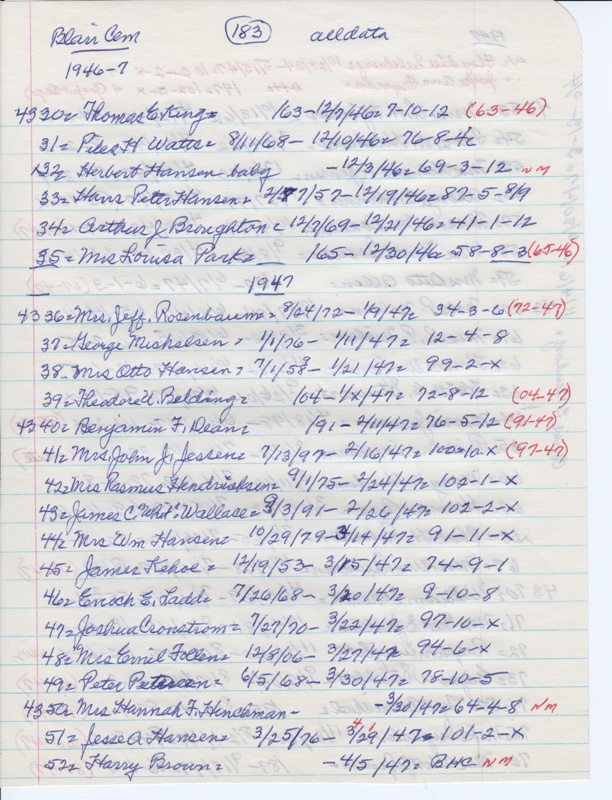 Blair Cem 183 alldata
1946-7
4330= Thomas E. King= /63-12/7/46= 7-10-12 (63-46)
31= Piles H Watts= 8/11/68- 12/10/46= 76-8-4c
32= Herbert Hansen baby -12/3/46= 69-3-12 NM
33= Hans Peter Hansen= 2/7/57-12/19/46= 87-5-8/9
34= Arthur J Broughton= 12/2/69-12/21/46= 41-1-12
35= Mrs Louisa Park= /65- 12/30/46= 58-8-3 (65-46)
1947
4336= Mrs. Jeff. Rosenbaum= 8/24/72- 1/9/47= 34-3-6 (72-47)
37= George Mickelsen= 1/1/76- 1/11/47= 12-4-8
38- Mrs Otto Hansen= 7/1/583- 1/21/47= 99-2-x
39= Theodore W. Belding= /04- 1/x/47= 72-8-12 (04-47)
4340= Benjamin F. Dean= /91- 2/11/47= 76-5-12 (91-47)
41= Mrs, John J. Jessen= 7/13/97- 2/16/47= 100=10-x (97-47)
42= Mrs Rasmus Hendricksen= 9/1/75- 2/24/47= 102-1-x
43= James C. "Whit". Wallace= 9/3/91- 2/26/47= 102-2-x
44= Mrs Wm Hansen= 10/29/79- 3/14/47= 91-11-x
45= James Kehoe= 12/19/53- 3/15/47= 74-9-1
46= Enoch E. Ladd= 7/26/68- 3/20/47= 9-10-8
47= Joshua Cronstrom= 7/27/70- 3/22/47= 97-10-x
48= Mrs Emil Follen= 12/8/06- 3/27/47= 94-6-x
49= Peter Petersen= 6/5/68- 3/30/47= 78-10-5
4350= Mrs Hannah F. Hinchman- -3/30/47= 64-4-8 NM
51= Jesse A Hansen= 3/25/76- 3/29/47= 101-2-x
52= Harry Brown= -4/5/47= BHC NM